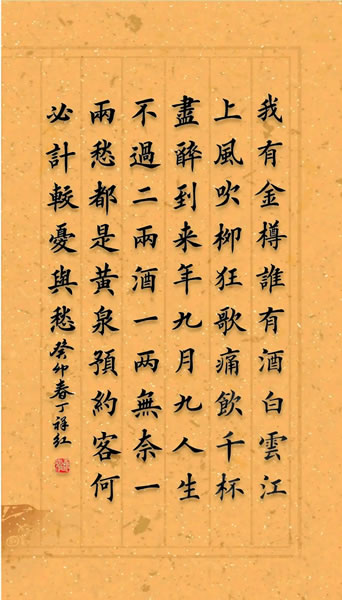 我有金樽誰有酒白雲江
上風吹柳狂歌痛飲千杯
盡醉到来年九月九人生
不過二兩酒一两無奈一
兩愁都是黄泉預約客何
必計較憂與愁癸卯春丁祥红